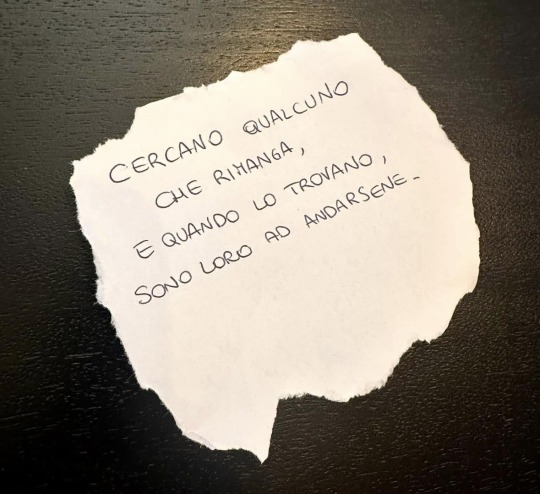 CERCANO QUALCUNO
CHE RIMANGA,
E QUANDO LO TROVANO,
SONO LORO AD ANDARSENE-